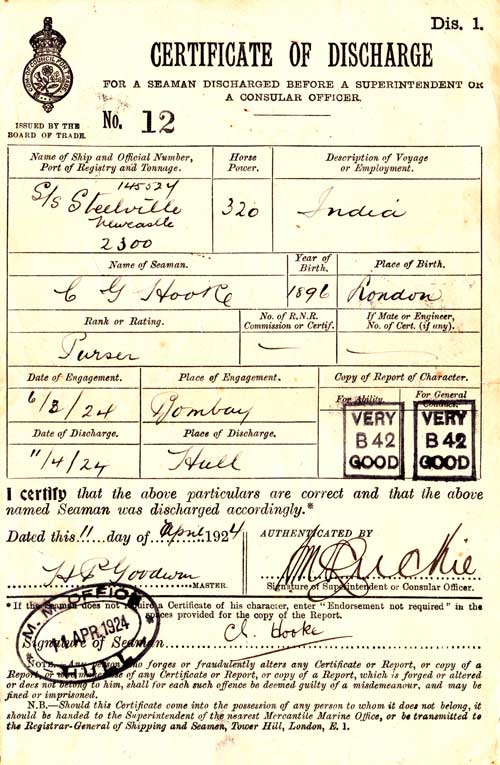 Dis. 1.
CERTIFICATE OF DISCHARGE
FOR A SEAMAN DISCHARGED BEFORE A SUPERINTENDENT OR
A CONSULAR OFFICER.
ISSUED BY THE
BOARD OF TRADE.
No. 12
Name of Ship and Official Number,
Port of Registry and Tonnage.
Horse
Power.
Description of Voyage
or Employment.
145524
S/S Steelville
Newcastle
2300
320
India
Name of Seaman.
Year of
Birth.
Place of Birth.
C G Hooke
1896
London
Rank or Rating.
No. of R.N.R.
Commission or Certif.
If Mate or Engineer,
No. of Cert. (if any).
Purser
—
—
Date of Engagement.
Place of Engagement.
Copy of Report of Character.
6/3/24
Bombay
For Ability.
For General
Conduct.
VERY
B 42
GOOD
VERY
B 42
GOOD
Date of Discharge.
Place of Discharge.
11/4/24
Hull
I certify that the above particulars are correct and that the above
named Seaman was discharged accordingly.*
Dated this 11 day of April 1924
AUTHENTICATED BY
H P Goodwin
MASTER.
Signature of Superintendent or Consular Officer.
*If the Seaman does not require a Certificate of his character, enter "Endorsement not required" in the
spaces provided for the copy of the Report.
M.M. OFFICE
11 APR. 1924
HULL
Signature of Seaman
C. Hooke
NOTE.—Any person who forges or fraudulently alters any Certificate or Report, or copy of a
Report, or who makes use of any Certificate or Report, or copy of a Report, which is forged or altered
or does not belong to him, shall for each such offence be deemed guilty of a misdemeanour, and may be
fined or imprisoned.
N.B.—Should this Certificate come into the possession of any person to whom it does not belong, it
should be handed to the Superintendent of the nearest Mercantile Marine Office, or be transmitted to
the Registrar-General of Shipping and Seamen, Tower Hill, London, E. 1.